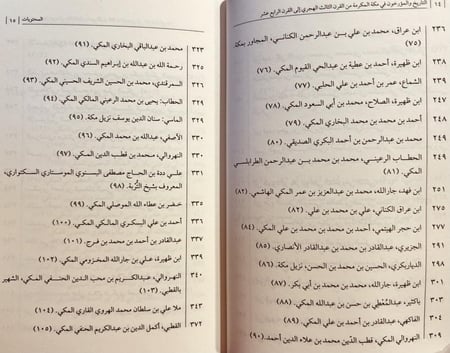 ١٤ | التاريخ والمؤرخون في مكة المكرمة من القرن الثالث الهجري إلى القرن الرابع عشر
ابن عراق، محمد بن علي بن عبدالرحمن الكناني، المجاور بمكة ٢٣٦
(٧٥)
ابن ظهيرة، أحمد بن عطية بن عبدالحي القيوم المكي. (٧٦) ٢٣٨
الشماع، عمر بن أحمد بن علي الحلبي. (٧٧)
ابن ظهيرة، الصلاح، محمد بن أبي السعود المكي. (٧٨) ٢٤٧
أحمد بن محمد البخاري المكي. (٧٩)
محمد بن عبدالرحمن بن أحمد البكري الصديقي. (٨٠) ٢٤٩
الحطاب الرعيني، محمد بن محمد بن عبدالرحمن الطرابلسي ٢٤٩
المكي. (٨١)
ابن فهد، جارالله، محمد بن عبدالعزيز بن عمر المكي الهاشمي. (٨٢) ٢٥١
ابن عراق الكناني، علي بن محمد بن علي. (٨٢) ٢٧٥
ابن حجر الهيتمي، أحمد بن محمد بن علي المكي. (٨٤)
الجزيري، عبدالقادر بن محمد بن عبدالقادر الأنصاري. (٨٥) ٢٩١
الدياربكري، الحسين بن محمد بن الحسن، نزيل مكة. (٨٦)
ابن فهد، جارالله، محمد بن محمد بن أبي بكر. (٨٧)
باكثير، عبدالمعطي بن حسن بن عبدالله المكي. (٨٨)
الفاكهي، عبدالقادر بن أحمد بن علي المكي. (٨٩)
النهروالي المكي، قطب الدين محمد بن علاء الدين أحمد. (٩٠) ٣٠٩
المحتويات | ١٥
محمد بن عبدالباقي البخاري المكي. (٩١) ٣٢٣
رحمة الله بن عبدالله بن إبراهيم السندي المكي. (٩٢)
السمرقندي، محمد بن الحسين الشريف الحسيني المكي. (٩٣)
الحطاب: يحيى بن محمد الرعيني المالكي المكي. (٩٤) ٣٢٩
الماسي: سنان الدين يوسف نزيل مكة. (٩٥)
الآصفي، عبدالله بن محمد المكي. (٩٦) ٣٣٠
النهروالي، محمد بن قطب الدين المكي. (٩٧)
علي دده بن الحاج مصطفى البسنوي الموستاري السكتواري،
المعروف بشيخ التُّربة. (٩٨)
خضر بن عطاء الله الموصلي المكي. (٩٩) ٣٣٥
أحمد بن علي البسكري المالكي المكي. (١٠٠) ٣٣٦
عبدالقادر بن أحمد بن محمد بن فرج. (١٠١) ٣٣٧
ابن ظهيرة، علي بن جارالله المخزومي المكي. (١٠٢)
النهروالي، عبدالكريم بن محب الدين الحنفي المكي، الشهير ٣٤٠
بالقطبي. (١٠٣)
ملا علي بن سلطان محمد الهروي القاري المكي. (١٠٤) ٣٤٣
القطبي، أكمل الدين بن عبدالكريم الحنفي المكي. (١٠٥) ٣٧٢